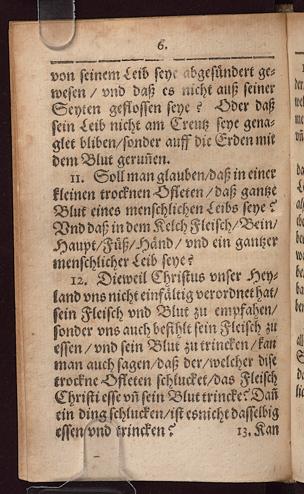 6.
von seinem Leib seye abgesündert ge-
wesen / vnd daß es nicht auß seiner
Seyten geflossen seye? Oder daß
sein Leib nicht am Creutz seye gena-
glet bliben / sonder auff die Erden mit
dem Blut gerunen.
11. Soll man glauben / daß in einer
kleinen trocknen Ofleten / daß gantze
Blut eines menschlichen Leibs seye?
Vnd daß in dem Kelch Fleisch / Bein /
Haupt / Füß / Händ / vnd ein gantzer
menschlicher Leib seye?
12. Dieweil Christus vnser Hey-
land vns nicht einfältig verordnet hat /
sein Fleisch vnd Blut zu empfahen /
sonder vns auch befihlt sein Fleisch zu
essen / vnd sein Blut zu trincken / kan
man auch sagen / daß der / welcher dise
trockne Ofleten schlucket / das Fleisch
Christi esse vñ sein Blut trincke? Dañ
ein ding schlucken / ist es nicht dasselbig
essen vnd trincken?
13. Kan